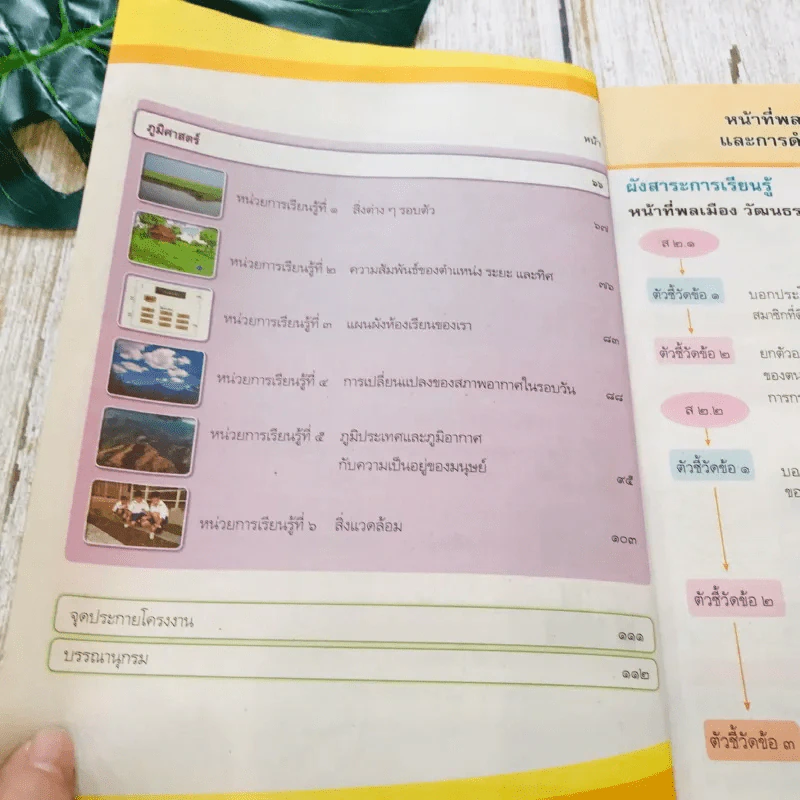 ภูมิศาสตร์
หน้า
๖๖
หน่วยการเรียนรู้ที่ ๑ สิ่งต่าง ๆ รอบตัว
๖๗
หน่วยการเรียนรู้ที่ ๒ ความสัมพันธ์ของตำแหน่ง ระยะ และทิศ
๗๖
หน่วยการเรียนรู้ที่ ๓ แผนผังห้องเรียนของเรา
๘๓
หน่วยการเรียนรู้ที่ ๔ การเปลี่ยนแปลงของสภาพอากาศในรอบวัน
๘๘
หน่วยการเรียนรู้ที่ ๕ ภูมิประเทศและภูมิอากาศ
กับความเป็นอยู่ของมนุษย์
๙๕
หน่วยการเรียนรู้ที่ ๖ สิ่งแวดล้อม
๑๐๓
จุดประกายโครงงาน
๑๑๑
บรรณานุกรม
๑๑๒
หน้าที่พล
และการดำ
ผังสาระการเรียนรู้
หน้าที่พลเมือง วัฒนธร
ส ๒.๑
ตัวชี้วัดข้อ ๑
บอกประโ
สมาชิกที่ดี
ตัวชี้วัดข้อ ๒
ยกตัวอ
ของตน
การกร
ส ๒.๒
ตัวชี้วัดข้อ ๑
บอ
ขอ
ตัวชี้วัดข้อ ๒
ตัวชี้วัดข้อ ๓